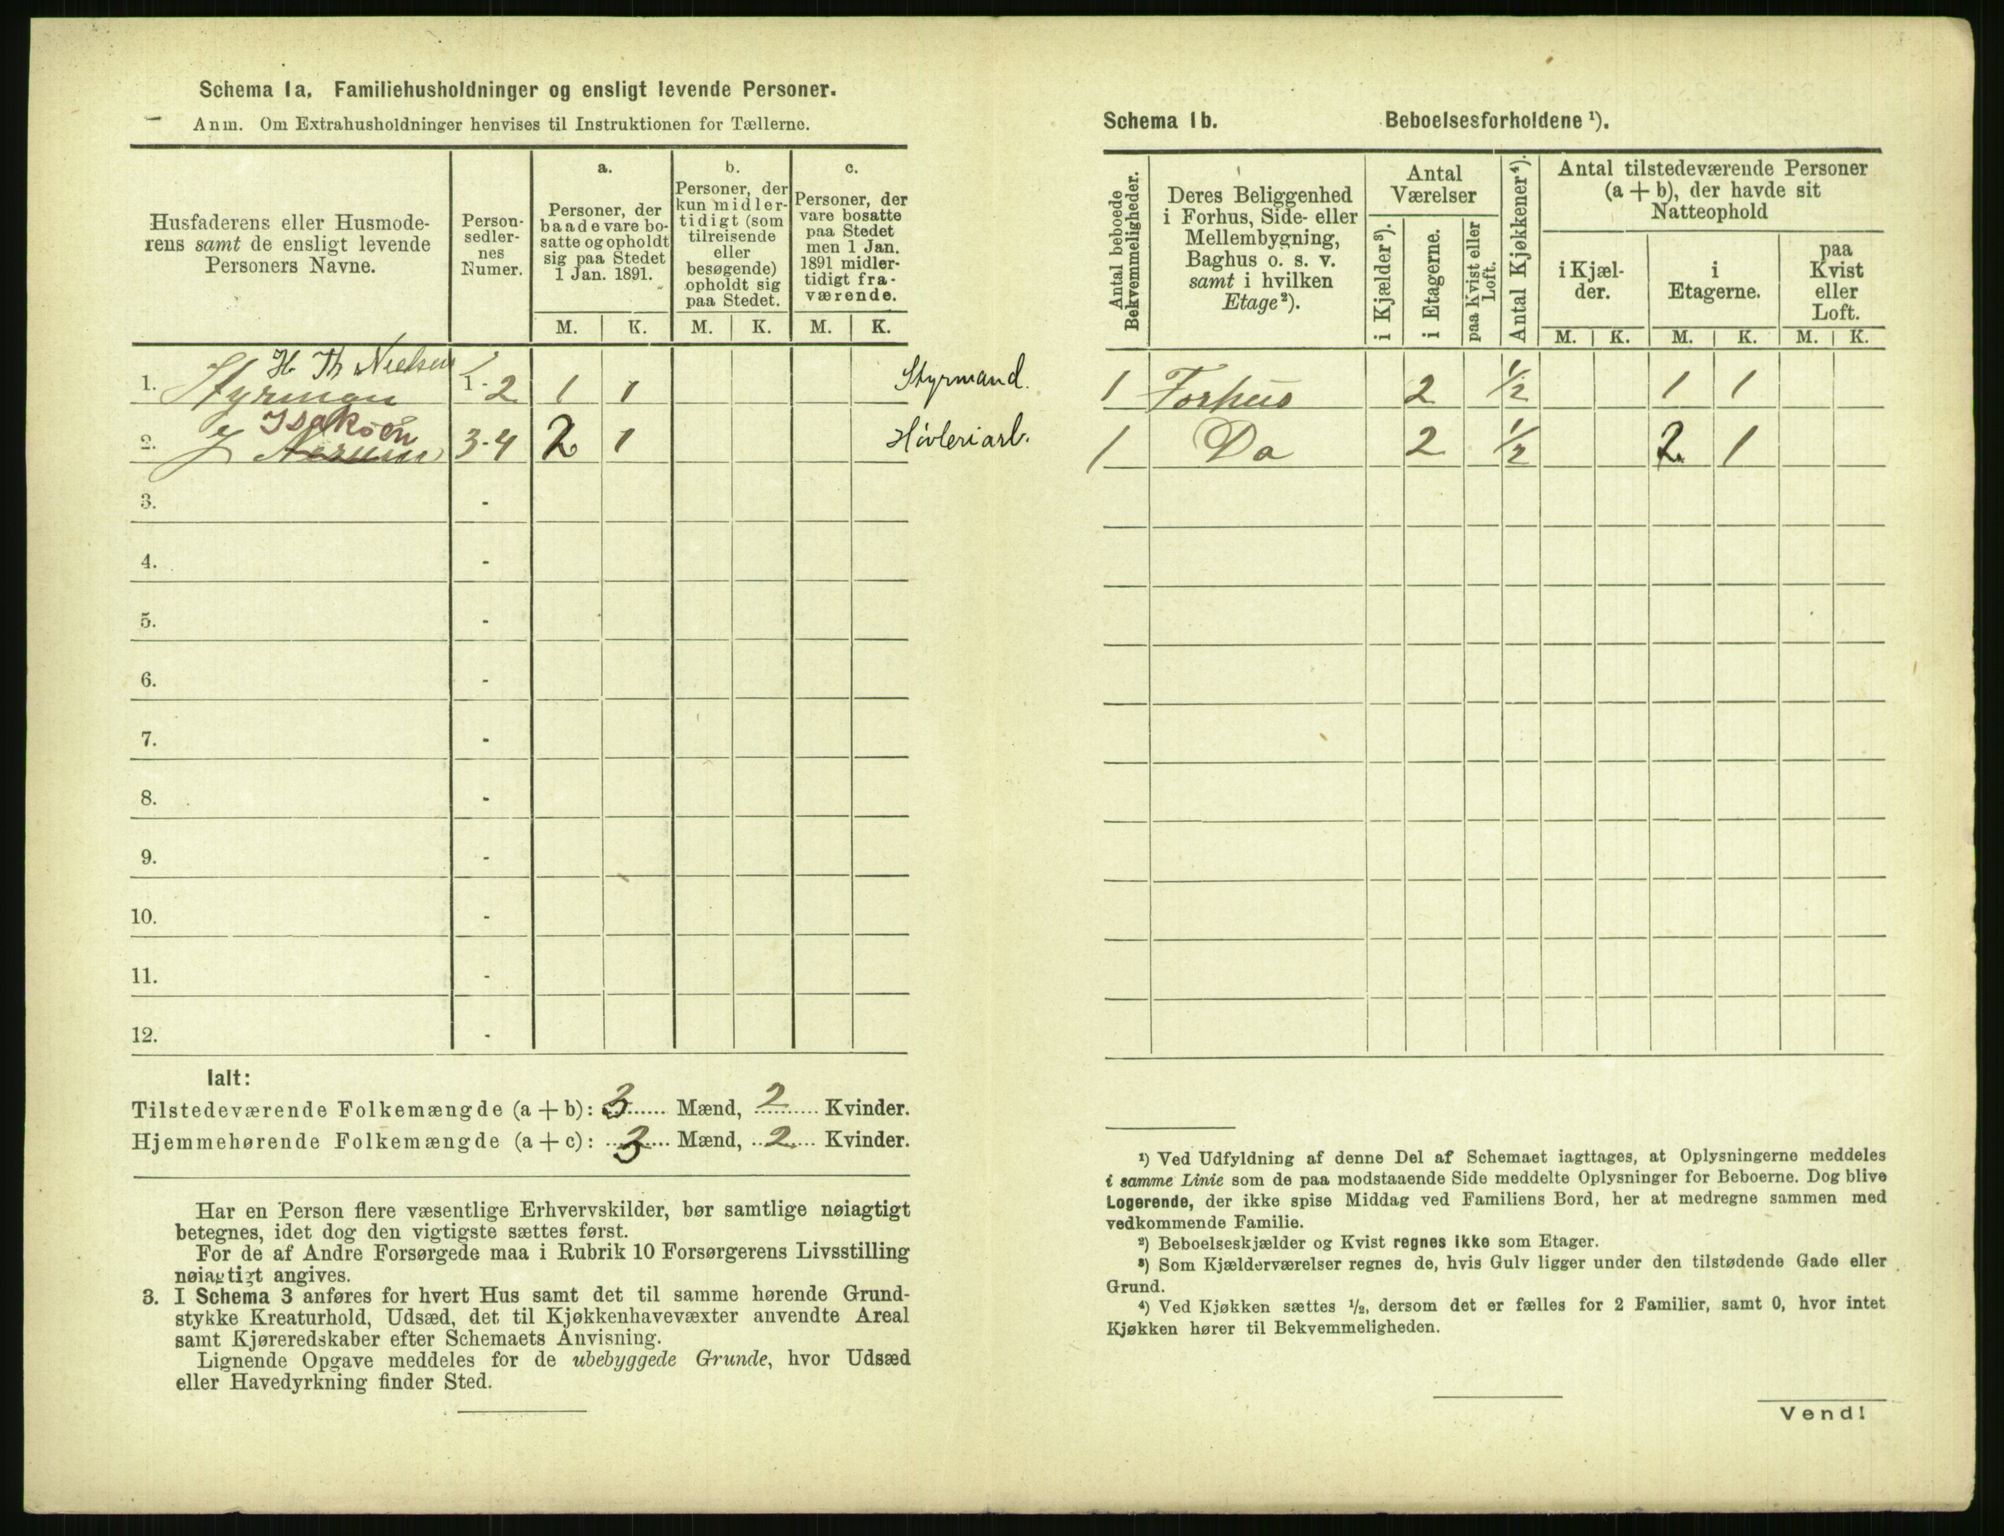 Schema 1a. Familiehusholdninger og ensligt levende Personer.
Anm. Om Extrahusholdninger henvises til Instruktionen for Tællerne.
Husfaderens eller Husmode-
rens samt de ensligt levende
Personers Navne.
Person-
sedler-
nes
Numer.
a.
Personer, der
baade vare bo-
satte og opholdt
sig paa Stedet
1 Jan. 1891.
b.
Personer, der
kun midler-
tidigt (som
tilreisende
eller
besøgende)
opholdt sig
paa Stedet.
c.
Personer, der
vare bosatte
paa Stedet
men 1 Jan.
1891 midler-
tidigt fra-
værende.
M. K. M. K. M. K.
H. Th Nielsen
1. Styrman 1-2 1 1 Styrmand.
Isaksen
2. 3-4 2 1 Høvleriarb.
3. -
4. -
5. -
6. -
7. -
8. -
9. -
10. -
11. -
12. -
Ialt:
Tilstedeværende Folkemængde (a + b): 3 Mænd, 2 Kvinder.
Hjemmehørende Folkemængde (a + c): 3 Mænd, 2 Kvinder.
Har en Person flere væsentlige Erhvervskilder, bør samtlige nøiagtigt
betegnes, idet dog den vigtigste sættes først.
For de af Andre Forsørgede maa i Rubrik 10 Forsørgerens Livsstilling
nøiagtigt angives.
3. I Schema 3 anføres for hvert Hus samt det til samme hørende Grund-
stykke Kreaturhold, Udsæd, det til Kjøkkenhavevæxter anvendte Areal
samt Kjøreredskaber efter Schemaets Anvisning.
Lignende Opgave meddeles for de ubebyggede Grunde, hvor Udsæd
eller Havedyrkning finder Sted.
Schema 1b. Beboelsesforholdene ¹).
Antal beboede
Bekvemmeligheder.
Deres Beliggenhed
i Forhus, Side- eller
Mellembygning,
Baghus o. s. v.
samt i hvilken
Etage²).
Antal
Værelser
i Kjælder³).
i Etagerne.
paa Kvist eller
Loft.
Antal Kjøkkener⁴).
Antal tilstedeværende Personer
(a + b), der havde sit
Natteophold
i Kjæl-
der.
i
Etagerne.
paa
Kvist
eller
Loft.
M. K. M. K. M. K.
1 Forhus 2 ½ 1 1
1 Do 2 ½ 2 1
¹) Ved Udfyldning af denne Del af Schemaet iagttages, at Oplysningerne meddeles
i samme Linie som de paa modstaaende Side meddelte Oplysninger for Beboerne. Dog blive
Logerende, der ikke spise Middag ved Familiens Bord, her at medregne sammen med
vedkommende Familie.
²) Beboelseskjælder og Kvist regnes ikke som Etager.
³) Som Kjælderværelser regnes de, hvis Gulv ligger under den tilstødende Gade eller
Grund.
⁴) Ved Kjøkken sættes ½, dersom det er fælles for 2 Familier, samt 0, hvor intet
Kjøkken hører til Bekvemmeligheden.
Vend!